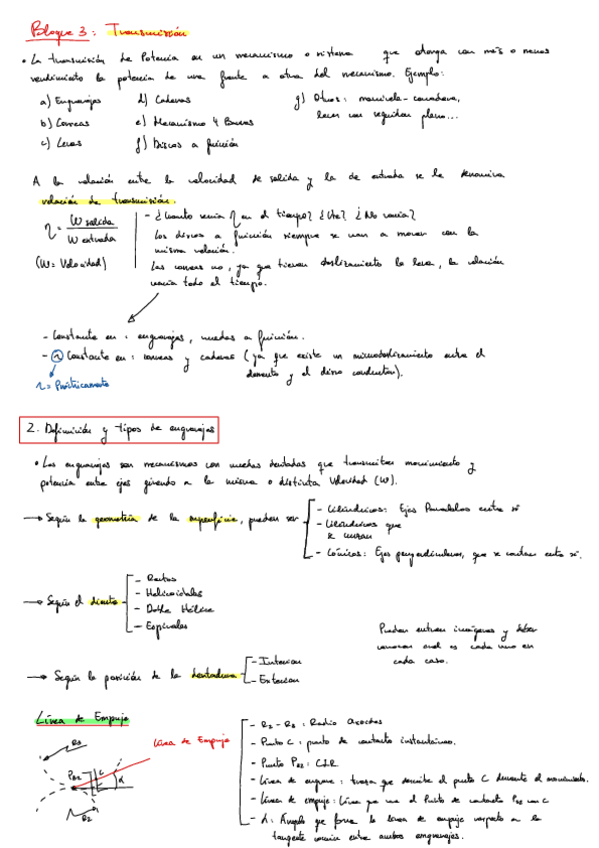 Bloque 3: Transmisión
• La transmisión de Potencia en un mecanismo o sistema que otorga con más o menos
rendimiento la potencia de una fuente a otra del mecanismo. Ejemplo:
a) Engranajes d) Cadenas g) Otros: manivela-corredera,
b) Correas e) Mecanismo 4 Barras levas con seguidor plano...
c) Levas f) Discos a fricción
A la relación entre la velocidad de salida y la de entrada se le denomina
relación de transmisión.
η = W salida / W entrada
(W = Velocidad)
- ¿Cuanto varía η en el tiempo? ¿Cte? ¿No varía?
Los discos a fricción siempre se van a mover con la
misma relación.
Las correas no, ya que tienen deslizamiento la leva, la relación
varía todo el tiempo.
- Constante en: engranajes, ruedas a fricción.
- ~ Constante en: correas y cadenas (ya que existe un microdeslizamiento entre el
elemento y el disco conductor).
~ = Prácticamente
2. Definición y tipos de engranajes
• Los engranajes son mecanismos con ruedas dentadas que transmiten movimiento y
potencia entre ejes girando a la misma o distinta velocidad (W).
→ Según la geometría de la superficie, pueden ser
- Cilíndricos: Ejes Paralelos entre sí
- Cilíndricos que
se cruzan
- Cónicos: Ejes perpendiculares, que se cortan entre sí.
→ Según el diente
- Rectos
- Helicoidales
- Doble Hélice
- Espirales
Pueden entrar imágenes y deber
conocer cual es cada uno en
cada caso.
→ Según la posición de la dentadura
- Interior
- Exterior
Línea de Empuje
Línea de Empuje
R3
P22
C
α
R2
- R2 - R3: Radio
- Punto C: punto de contacto instantáneo.
- Punto P22: CIR
- Línea de engrane: traza que describe el punto C durante el movimiento.
- Línea de empuje: Línea que une el Punto de contacto con C
- α: Ángulo que forma la línea de empuje respecto a la
tangente común entre ambos engranajes.